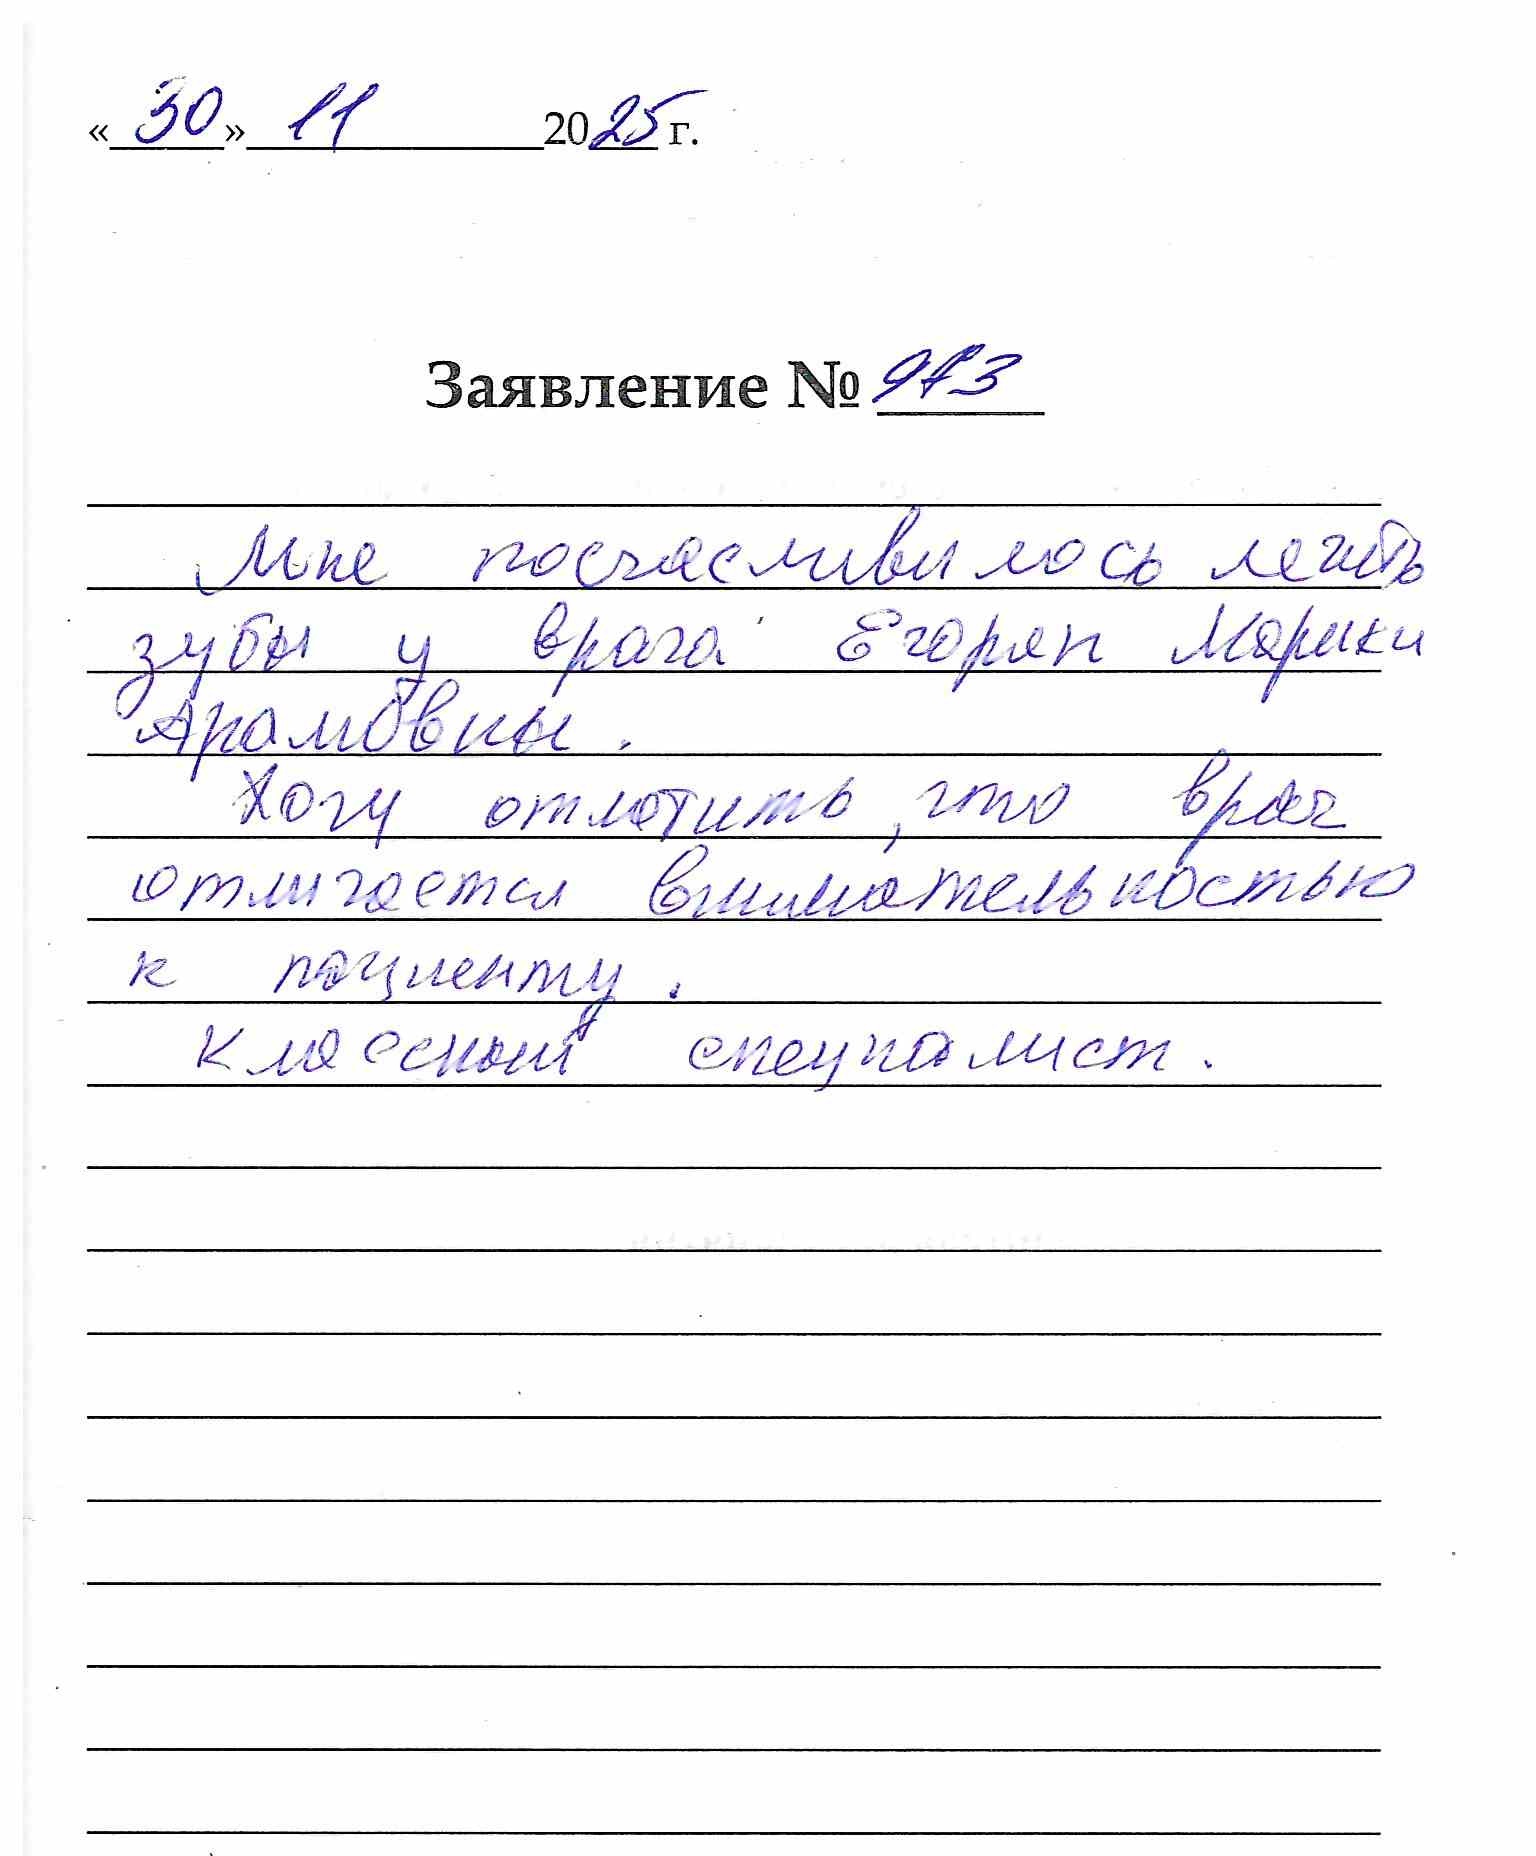 «30» 11 2025 г.
Заявление № 973
Мне посчасливилось лечить
зубы у врача Егорян Марики
Арамовны.
Хочу отметить, что врач
отличается внимательностью
к пациенту.
Классный специалист.